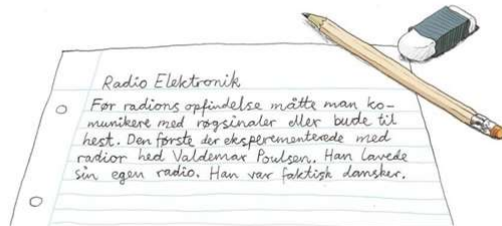 Radio Elektronik
Før radions opfindelse måtte man ko-
munikere med røgsinaler eller bude til
hest. Den første der eksperementerede med
radior hed Valdemar Poulsen. Han lavede
sin egen radio. Han var faktisk dansker.